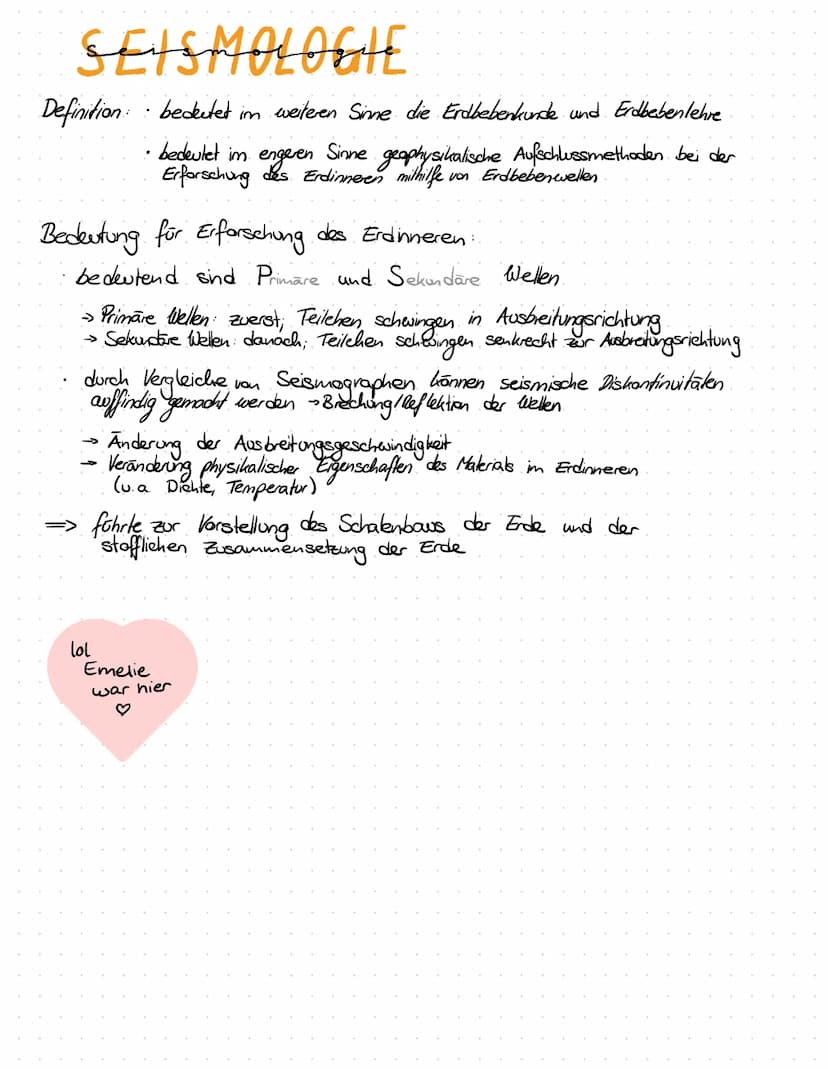 SEISMOLOGIE
seismologie
Definition: · bedeutet im weiteren Sinne die Erdbebenkunde und Erdbebenlehre
· bedeutet im engeren Sinne geophysikalische Aufschlussmethoden bei der
Erforschung des Erdinneren mithilfe von Erdbebenwellen
Bedeutung für Erforschung des Erdinneren:
· bedeutend sind Primäre und Sekundäre Wellen
→ Primäre Wellen: zuerst; Teilchen schwingen in Ausbeitungsrichtung
→ Sekundäre Wellen: danach; Teilchen schwingen senkrecht zur Ausbreitungsrichtung
· durch Vergleiche von Seismographen können seismische Diskontinuitäten
auffindig gemacht werden → Brechung/Reflektion der Wellen
→ Änderung der Ausbreitungsgeschwindigkeit
→ Veränderung physikalischer Eigenschaften des Materials im Erdinneren
(u.a. Dichte, Temperatur)
=> führte zur Vorstellung des Schalenbaus der Erde und der
stofflichen Zusammensetzung der Erde
lol
Emelie
war hier
♡